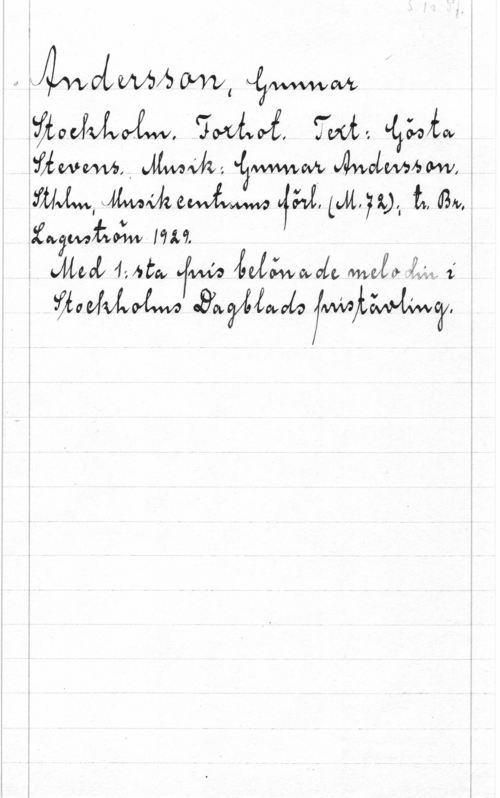 Andersson, Gunnar
Stockholm. Foxtrot. Text: Gösta
Stevens. Musik: Gunnar Andersson.
Sthlm, Musikcentrums förl. (M.72); tr. Br.
Lagerström 1929.
Med 1:sta pris belönade melodin i
Stockholms Dagblads pristävling.